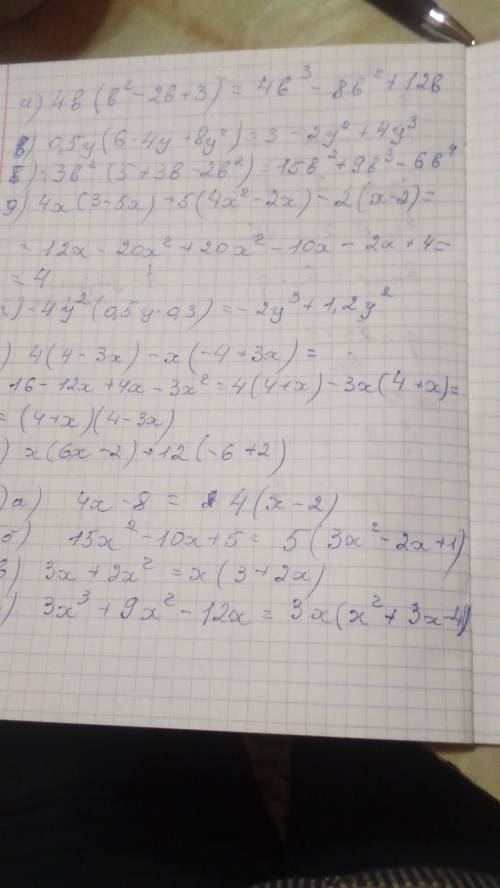 а) 4в(в² - 2в + 3) = 4в³ - 8в² + 12в
б) 0,5y(6 - 4y + 8y²) = 3 - 2y² + 4y³
в) 3в²(5 + 3в - 2в²) = 15в² + 9в³ - 6в⁴
д) 4x(3 - 5x) + 5(4x² - 2x) - 2(x - 2) =
= 12x - 20x² + 20x² - 10x - 2x + 4 =
= 4
г) -4y²(0,5y - 0,3) = -2y³ + 1,2y²
) 4(4 - 3x) - x(-4 + 3x) =
16 - 12x + 4x - 3x² = 4(4 + x) - 3x(4 + x) =
= (4 + x)(4 - 3x)
) x(6x - 2) + 12(-6 + 2)
) а) 4x - 8 = 4(x - 2)
б) 15x² - 10x + 5 = 5(3x² - 2x + 1)
в) 3x + 2x² = x(3 + 2x)
) 3x³ + 9x² - 12x = 3x(x² + 3x - 4)